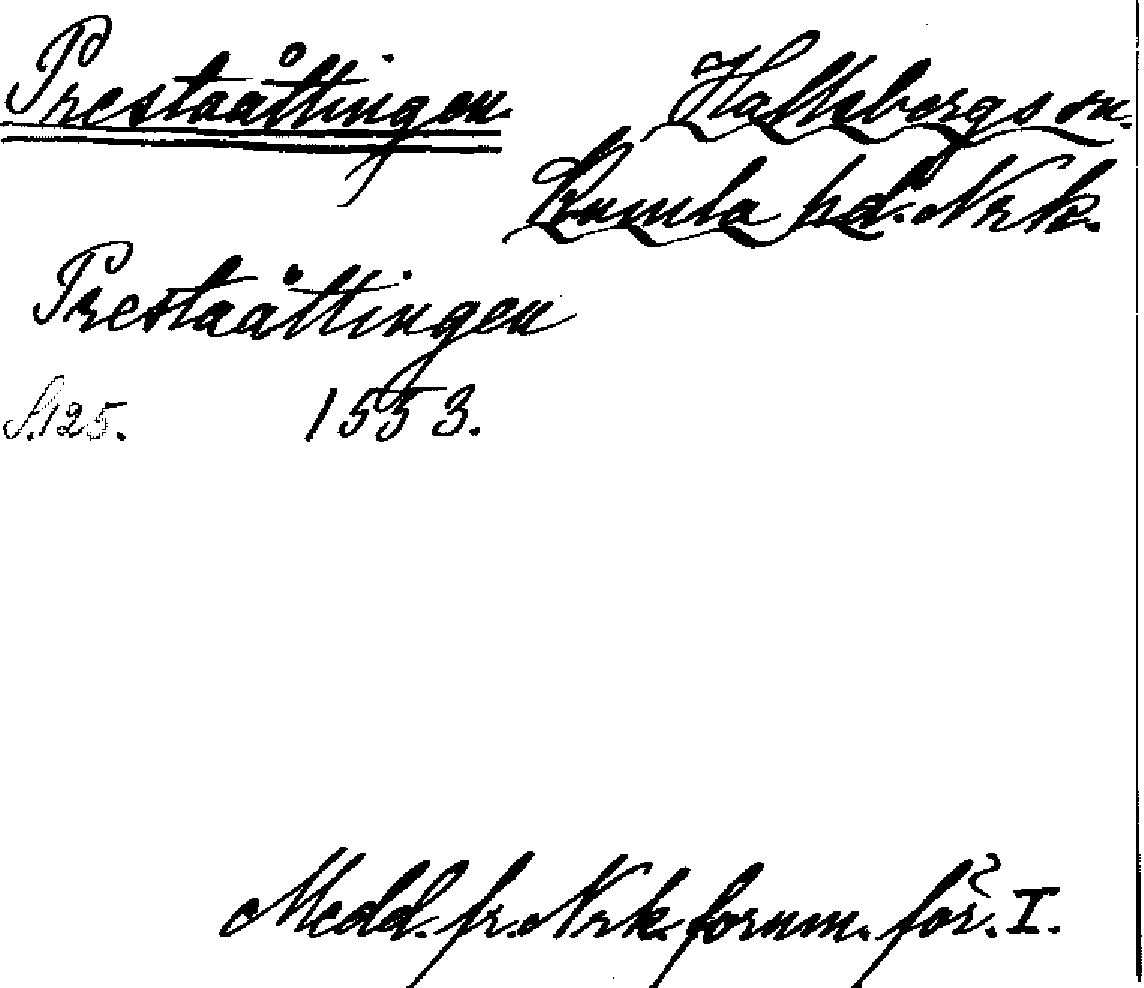 Prestaåttingen Hallsbergs sn.
Kumla hd. Nrk.
Prestaåttingen
S.125. 1553.
Medd. fr. Nrk. fornm. för. I.